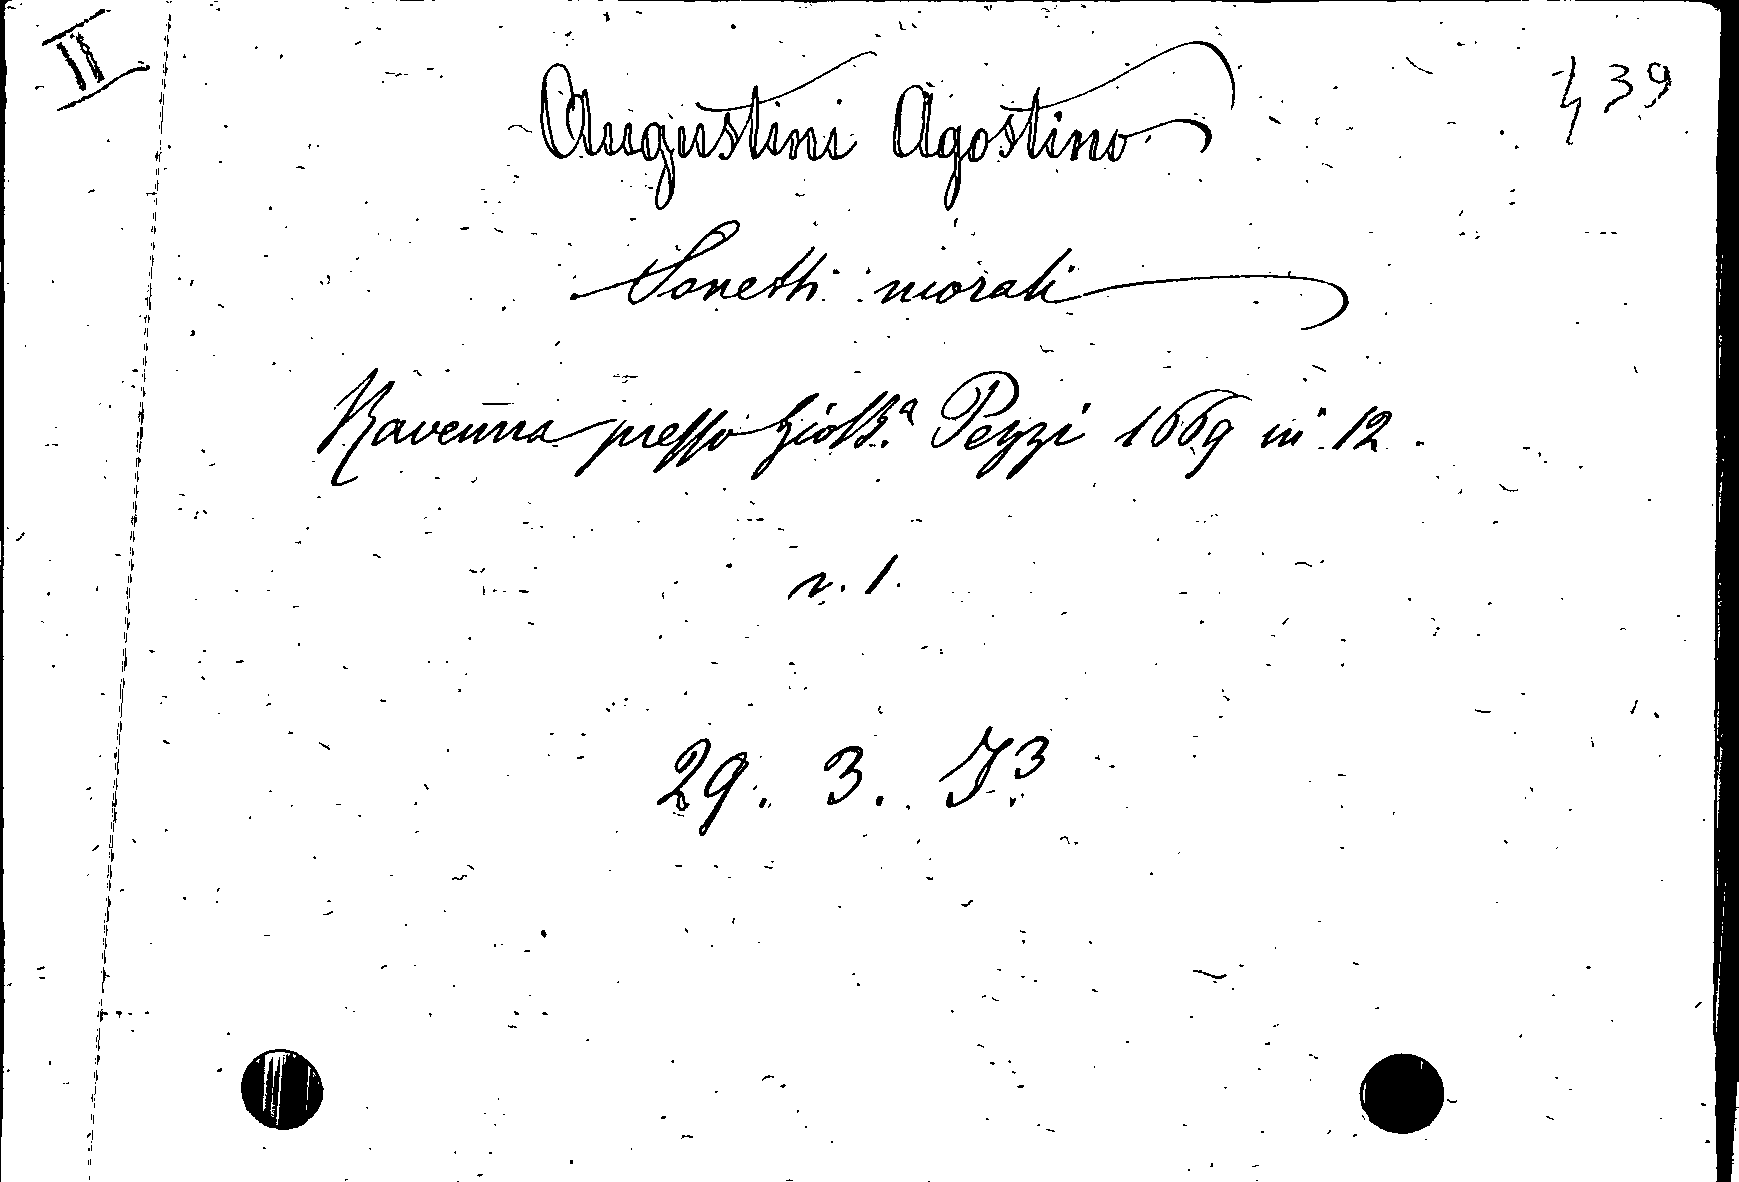 II
439
Augustini Agostino
Sonetti morali
Ravenna presso Gio B.a Pezzi 1669 in 12.
v. 1.
29. 3. I 3